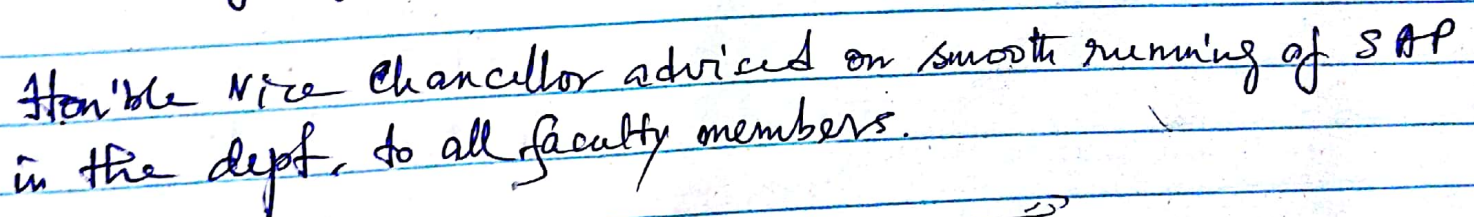 Hon'ble Vice Chancellor adviced on smooth running of SAP
in the dept. to all faculty members.